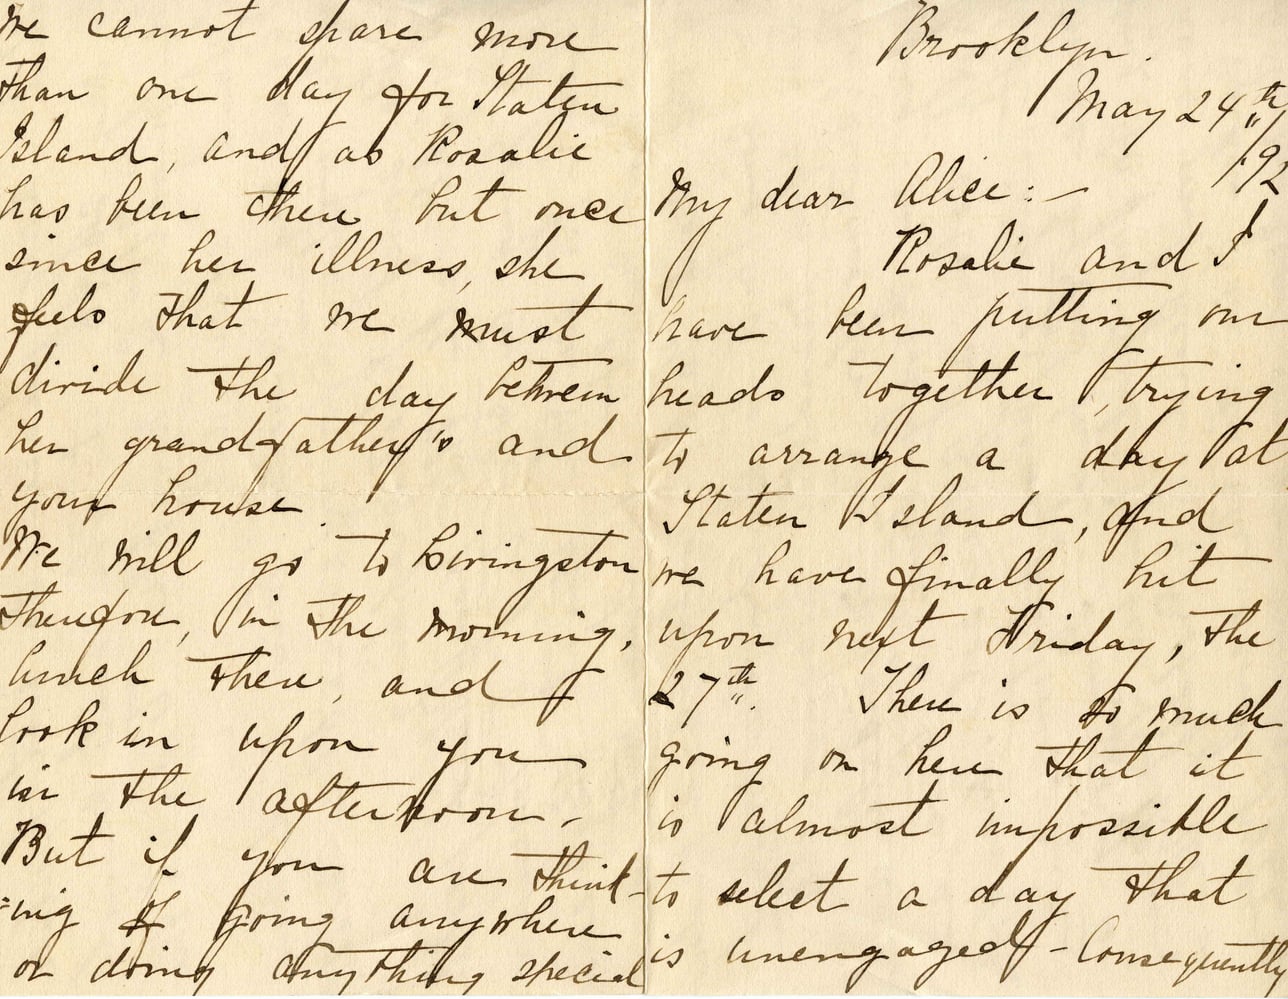 Brooklyn.
May 24th
/92
My dear Alice:-
Rosalie and I
have been putting our
heads together, trying
to arrange a day at
Staten Island, and
we have finally hit
upon next Friday, the
27th. There is so much
going on here that it
is almost impossible
to select a day that
is unengaged - Consequently
we cannot spare more
than one day for Staten
Island, and as Rosalie
has been there but once
since her illness, she
feels that we must
divide the day between
her grandfather's and
your house.
We will go to Livingston
therefore, in the morning,
lunch there, and
look in upon you
in the afternoon.
But if you are think-
=ing of going anywhere
or doing anything special